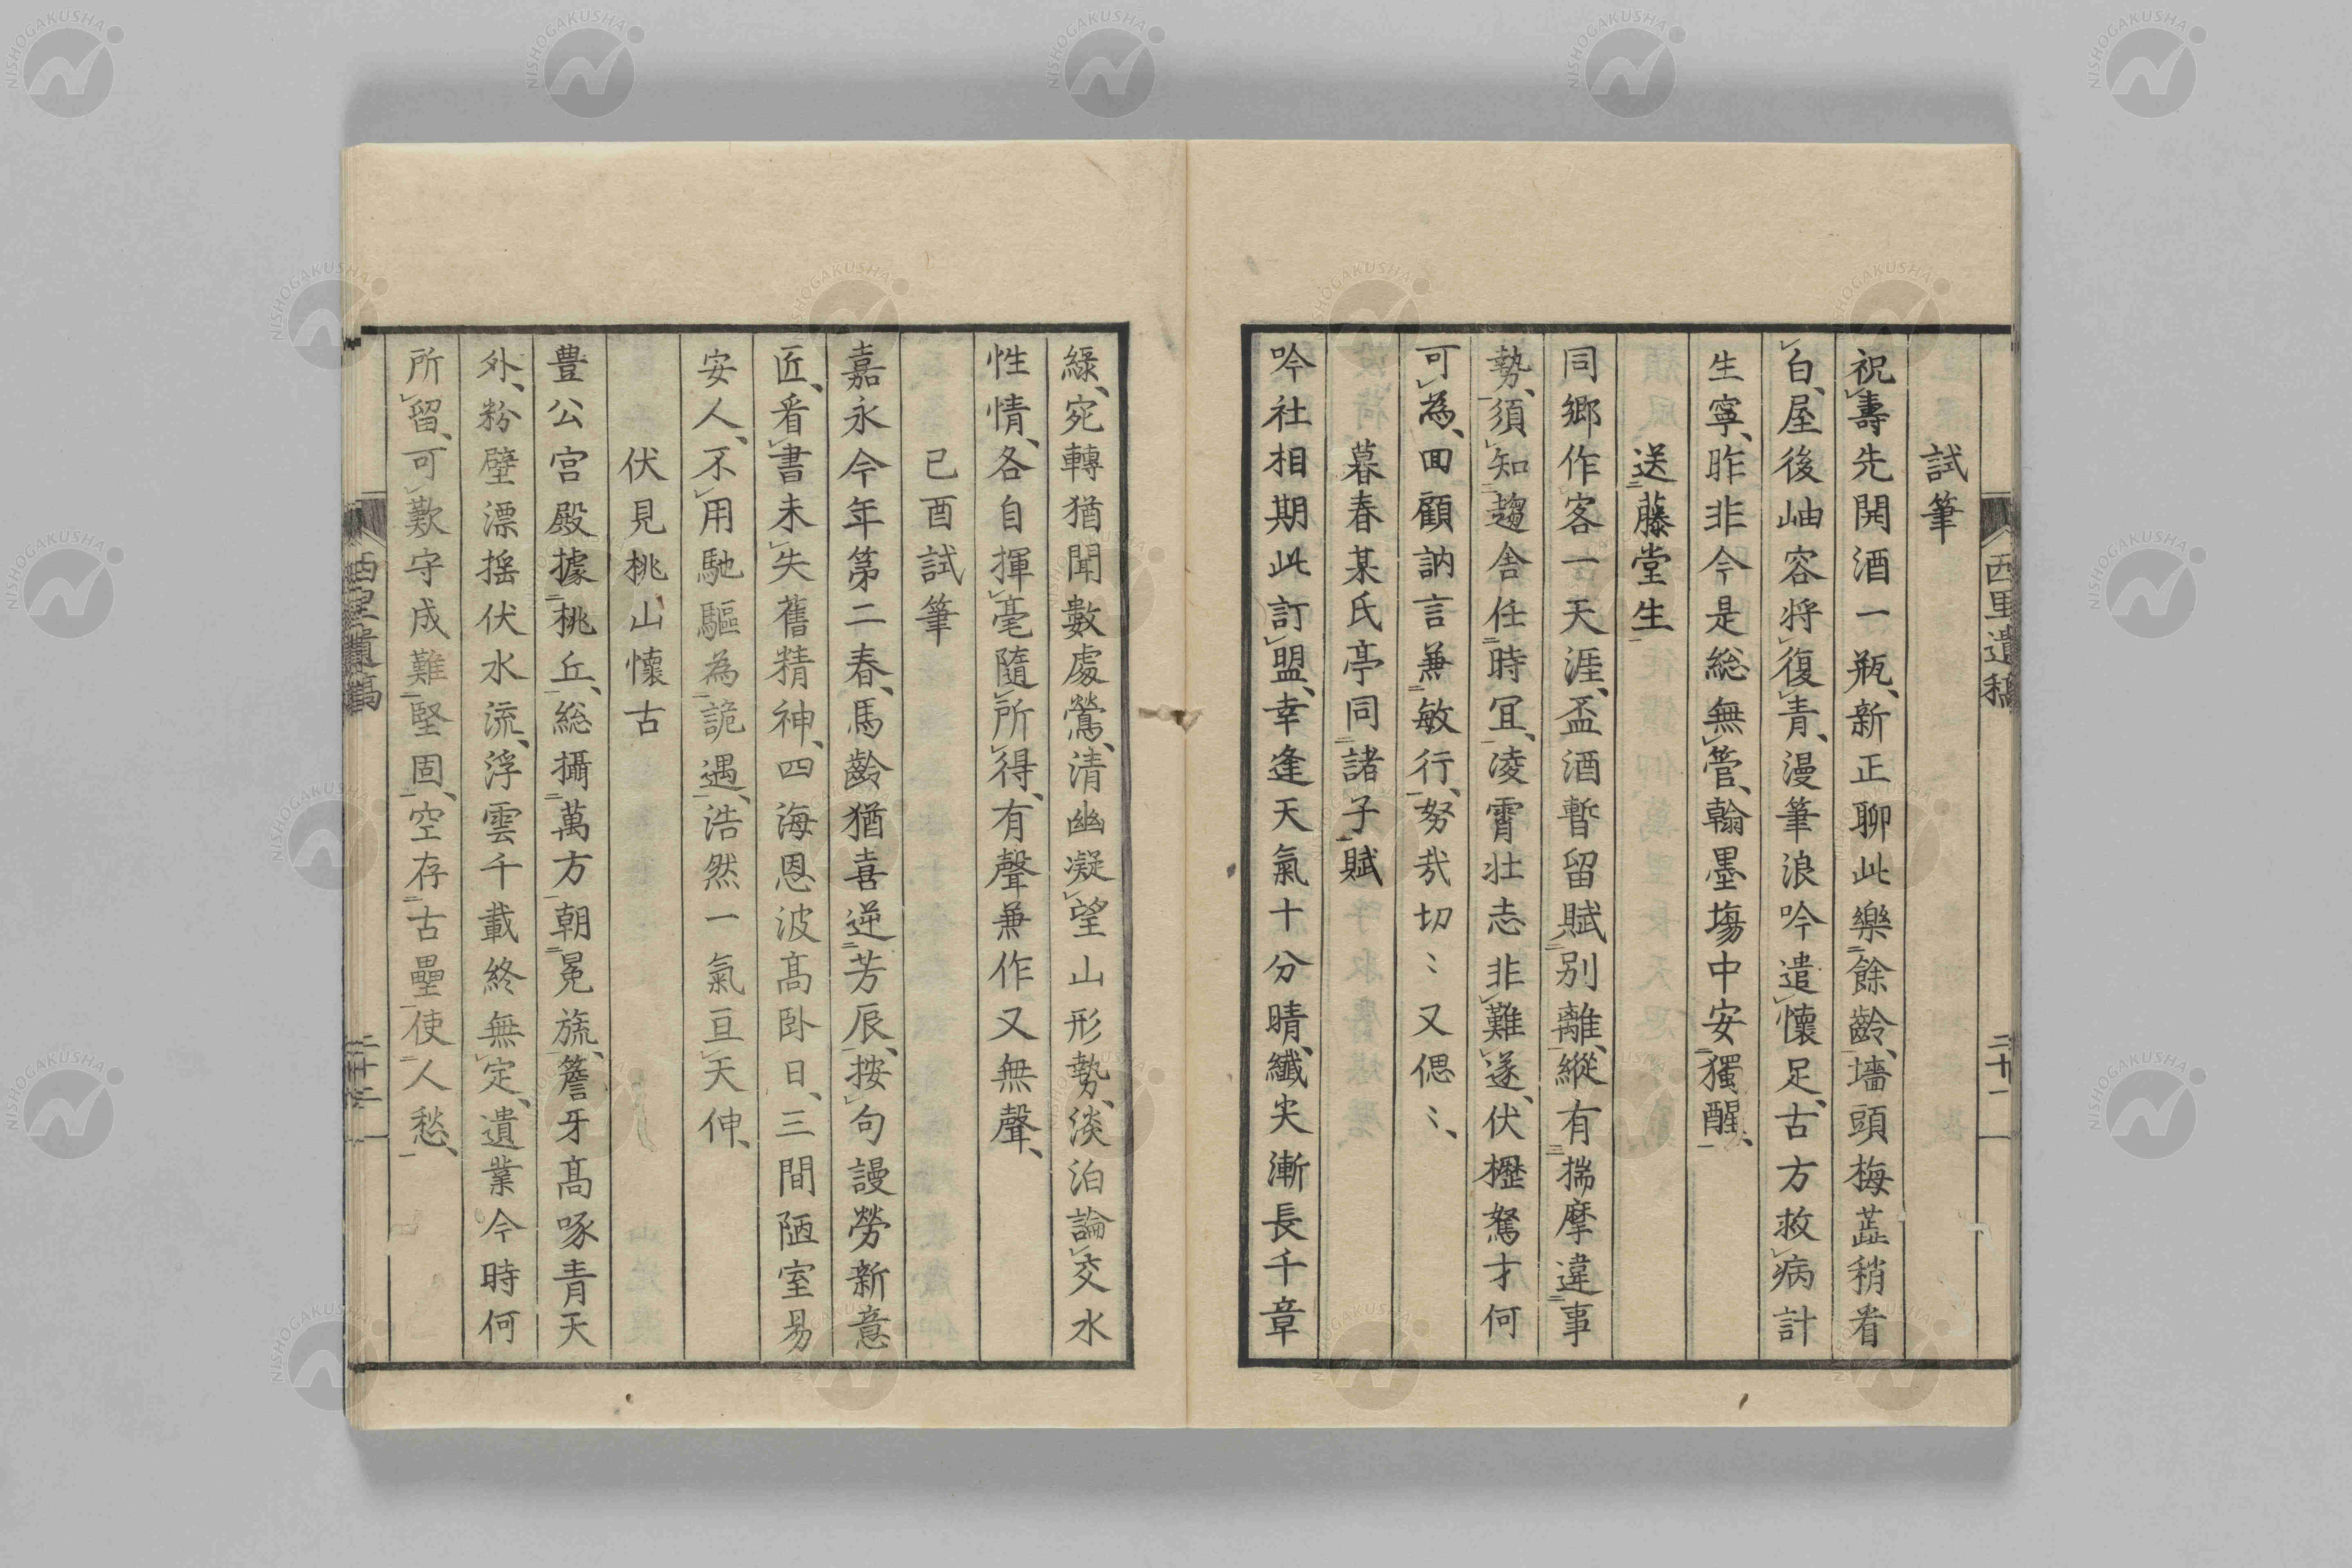 試筆
祝壽先開酒一瓶、新正聊此樂餘齡、墻頭梅蕋稍看
白、屋後岫容將復青、漫筆浪吟遣懷足、古方救病計
生寧、昨非今是総無管、翰墨塲中安獨醒、
送藤堂生
同鄉作客一天涯、盃酒暫留賦別離、縱有揣摩違事
勢、須知趨舎任時冝、凌霄壮志非難遂、伏櫪駑才何
可為、囬顧訥言兼敏行、努㢤切〻又偲〻、
暮春某氏亭同諸子賦
吟社相期此訂盟、幸逢天氣十分晴、纎尖漸長千章
綠、宛轉猶聞數處鶯、清幽凝望山形勢、淡泊論交水
性情、各自揮毫隨所得、有聲兼作又無聲、
己酉試筆
嘉永今年第二春、馬齡猶喜逆芳辰、按句謾勞新意
匠、看書未失舊精神、四海恩波髙卧日、三間陋室易
安人、不用馳驅為詭遇、浩然一氣亘天伸、
伏見桃山懷古
豊公宮殿據桃丘、総攝萬方朝冕旒、簷牙髙啄青天
外、粉壁漂揺伏水流、浮雲千載終無定、遺業今時何
所留、可歎守成難堅固、空存古壘使人愁、
西里遺稿
二十一
西里遺稿
二十二
NISHOGAKUSHA